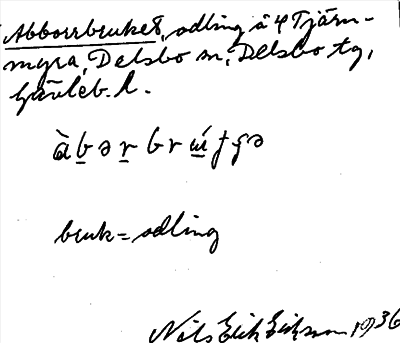 Abborrbruket, odling å φ Tjärn-
myra, Delsbo sn, Delsbo tg,
Gävleb. l.
bruk = odling
Nils Erik Eriksson 1936